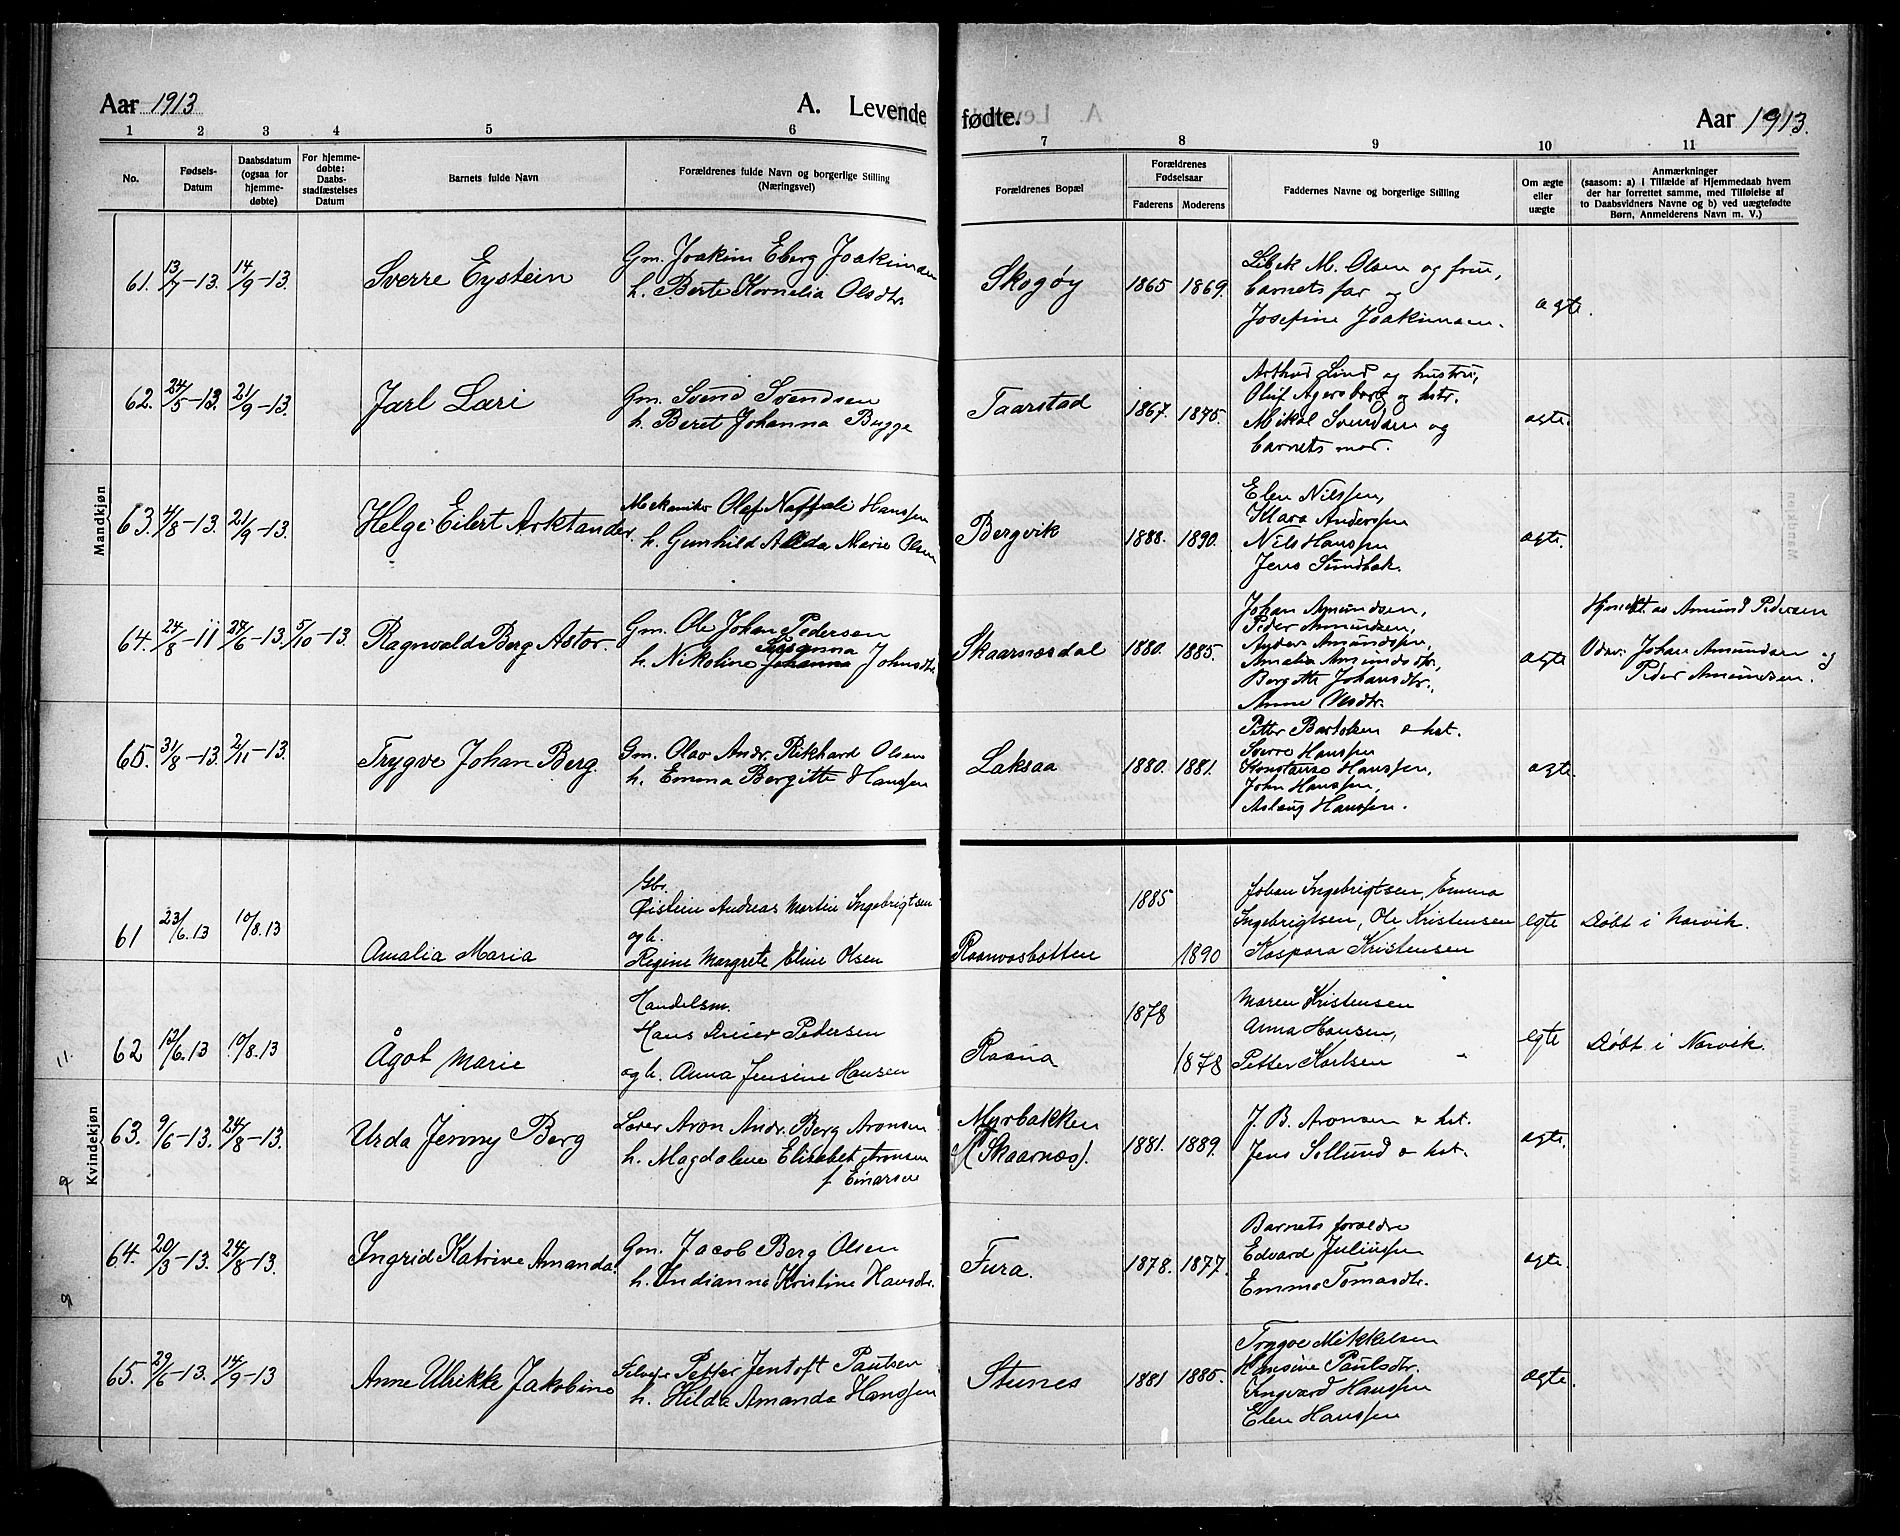 Aar 1913
A. Levende fødte.
Aar 1913.
1 2 3 4 5 6 7 8 9 10 11
No.
Fødsels-
Datum
Daabsdatum
(ogsaa for
hjemme-
døbte)
For hjemme-
døbte:
Daabs-
stadfæstelses
Datum
Barnets fulde Navn
Forældrenes fulde Navn og borgerlige Stilling
(Næringsvei)
Forældrenes Bopæl
Forældrenes
Fødselsaar
Faderens Moderens
Faddernes Navne og borgerlige Stilling
Om ægte
eller
uægte
Anmærkninger
(saasom: a) I Tilfælde af Hjemmedaab hvem
der har forrettet samme, med Tilføielse af
to Daabsvidners Navne og b) ved uægtefødte
Børn, Anmelderens Navn m. V.)
Mandkjøn
61. 13/7-13. 14/9-13. Sverre Eystein
Gm. Joakim Eberg Joakimsen
h. Berte Kornelia Olsdtr.
Skogøy 1865 1869.
M. Olsen og frue,
barnets far og
Josefine Joakimsen.
ægte.
62. 24/5-13. 21/9-13. Jarl Lari
Gm. Svend Svendsen
h. Beret Johanna Bugge
Taarstad 1867. 1875.
Arthur Lind og hustru,
Oluf Agersborg og hstr.
Mikal Svendsen og
barnets mor.
ægte.
63. 4/8-13. 21/9-13. Helge Eilert Arktander.
Mekaniker Olaf Naftali Hanssen
h. Gunhild Alda Marie Olsen
Bergvik 1888. 1890.
Elen Nilssen,
Klara Anderssen
Nils Hanssen
Jens Sundbak.
ægte.
64. 24/8-11 28/6-13. 5/10-13. Ragnvald Berg Astor.
Gm. Ole Johan Pedersen
Susanna
h. Nikoline Johanna Johnsdtr
Skaarnesdal 1880. 1885.
Johan Amundsen,
Peder Amundsen,
Anders Amundsen,
Amalia Amundsdtr,
Bergitte Johansdtr.,
Anne
ægte
Hjemdt. av Amund Pedersen
Johan Amundsen og
Peder Amundsen.
65. 31/8-13. 2/11-13. Trygve Johan Berg.
Gm. Olav Andr. Rikhard Olsen
h. Emma Bergitte Hanssen
Laksaa 1880. 1881.
Petter Bertelsen & hst.
Sverre Hanssen
Konstanse Hanssen,
John Hanssen,
Aslaug Hanssen.
ægte.
Kvindekjøn
61 23/6.13 10/8.13 Amalia Maria
Gbr.
Øistein Andreas Martin Ingebrigtsen
og h.
Regine Margrete Eline Olsen
Raanvasbotten 1885 1890
Johan Ingebrigtsen, Emma
Ingebrigtsen, Ole Kristensen
Kaspara Kristensen
egte Døbt i Narvik.
11.
62 13/6.13 10/8.13 Ågot Marie
Handelsm.
Hans Pedersen
og h. Anna Jensine Hansen
Raana 1878 1878
Maren Kristensen
Anna Hansen,
Petter Karlsen
egte Døbt i Narvik.
63. 9/6-13. 24/8-13. Urda Jenny Berg
Lærer Aron Andr. Berg Aronsen
h. Magdalene Elisabet Aronsen
f Einarsen
Myrbakken
(Skaarnes). 1881. 1889.
J. B. Aronsen & hst.
Jens Sellund & hst.
ægte.
9
64. 20/3-13. 24/8-13. Ingrid Katrine Amanda.
Gm. Jacob Berg Olsen
h. Indianna Kristine Hansdtr.
Fura. 1878. 1877.
Barnets forældre
Edvard Juliussen
Emma Tomasdtr.
ægte.
9
65. 29/6-13. 14/9-13 Anne Ulrikke Jakobine
Petter Jentoft Paulsen
h. Hilda Amanda Hanssen
Stunes 1881 1885.
Trygve Mikkelsen
Hansine Paulsdtr.
Ingvard Hanssen
Elen Hanssen
ægte.